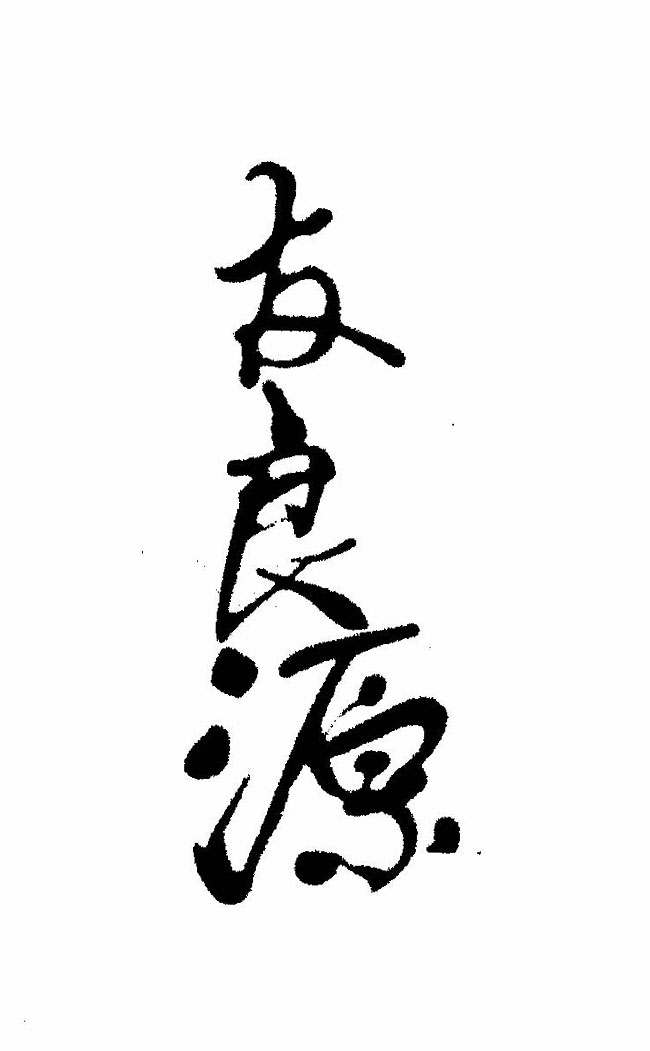 友良源